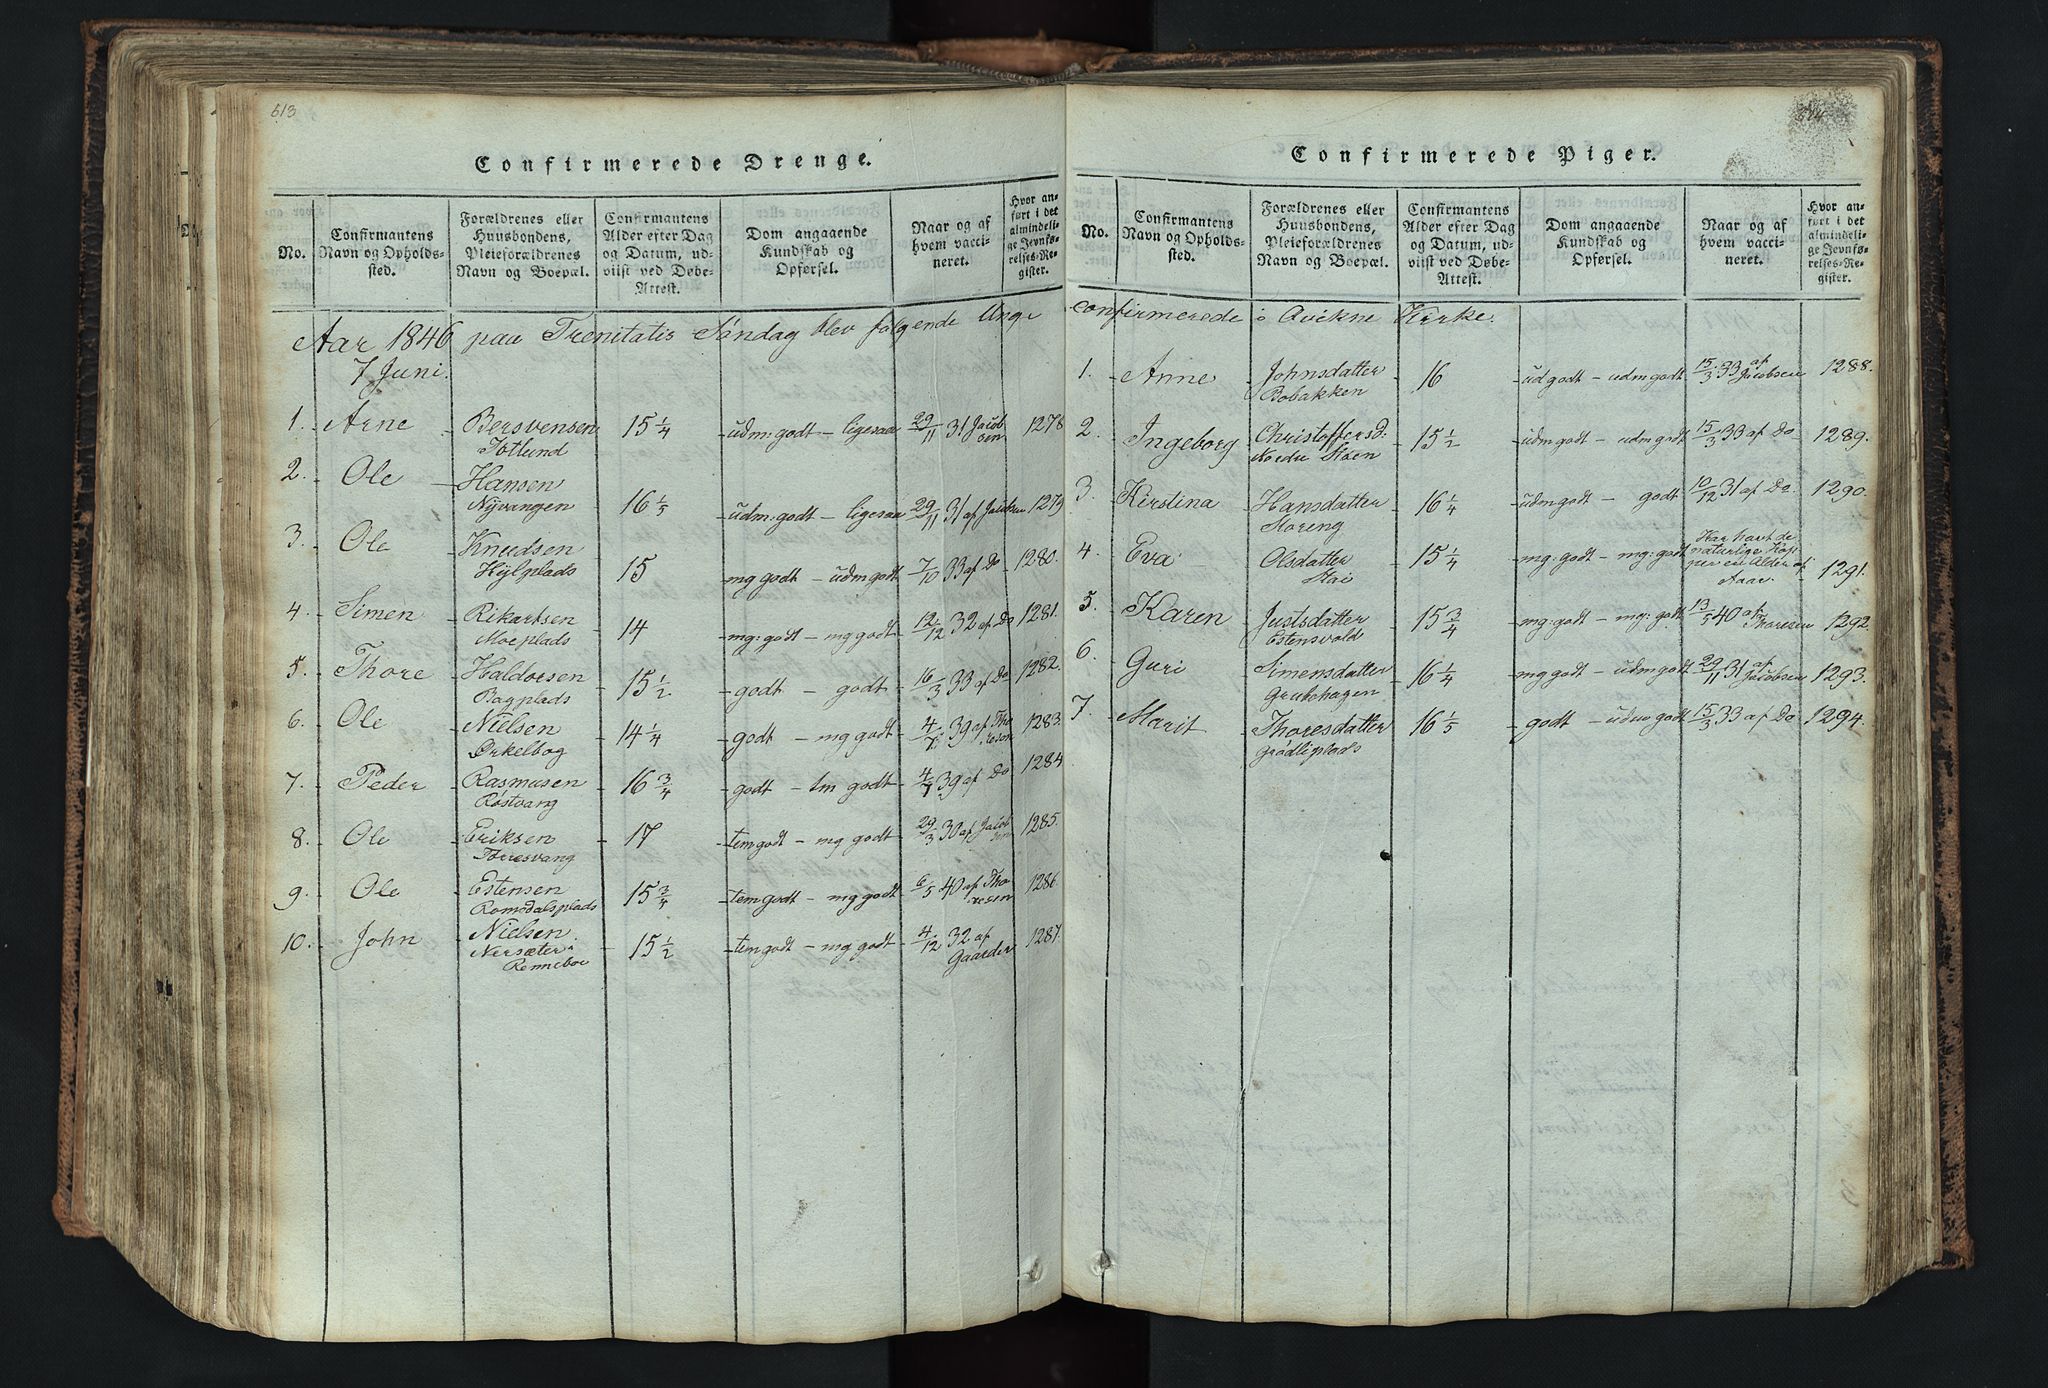 513
Confirmerede Drenge.
No.
Confirmantens Navn og Opholds-sted.
Forældrenes eller Huusbondens, Pleieforældrenes Navn og Boepæl.
Confirmantens Alder efter Dag og Datum, udviist ved Døbe-Attest.
Dom angaaende Kundskab og Opførsel.
Naar og af hvem vaccineret.
Hvor anført i det almindelige Jevnførelses-Register.
Aar 1846 paa Trenitatis Søndag blev følgende Unge
7 Juni.
1. Arne Bersvensen 15 1/4 udm: godt – ligesaa 29/11 31 Jacobsen 1278
Jotlund
2. Ole Hansen
Nÿvangen 16 1/5 udm: godt – ligesaa 29/11 31 af Jacobsen 1279
3. Ole Knudsen
Hÿlplads 15 mg godt – udm godt 7/10 33 af Do 1280.
4. Simen Rikartsen
Moeplads 14 mg: godt – mg godt 12/12 32 af Do 1281.
5. Thore Haldorsen
Bagplads 15 1/2 godt – godt 16/3 33 af Do 1282.
6. Ole Nielsen
Orkelbog 14 1/4 godt – mg godt 4/7 39 af Thoresen 1283.
7. Peder Rasmusen
Røstvang 16 3/4 godt – tm godt 4/7 39 af Do 1284
8. Ole Eriksen
Torresvang 17 temgodt – mg godt 29/3 30 af Jacobsen 1285.
9. Ole Estensen
Romsdalsplads 15 3/4 temgodt – mg godt 6/5 40 af Thoresen 1286.
10. John Nielsen
Nersæter i
Renneboe 15 1/2 temgodt – mg godt 4/12 32 af Gaarder 1287.
Confirmerede Piger.
No.
Confirmantens Navn og Opholds-sted.
Forældrenes eller Huusbondens, Pleieforældrenes Navn og Boepæl.
Confirmantens Alder efter Dag og Datum, udviist ved Døbe-Attest.
Dom angaaende Kundskab og Opførsel.
Naar og af hvem vaccineret.
Hvor anført i det almindelige Jevnførelses-Register.
confirmerede i Qvikne Kirke.
1. Anne Johnsdatter
Bobakken 16 udgodt – udmgodt 15/3 33 af Jacobsen 1288.
2. Ingeborg Christoffersd:
Nordre Stoen 15 1/2 udmgodt – udmgodt 15/3 33 af Do 1289.
3. Kirstina Hansdatter
Storeng 16 1/4 udmgodt – godt 10/12 31 af Do. 1290.
4. Eva Olsdatter
Stai 15 1/4 mg: godt – mg: godt Har havt de naturlige Kopper 1291.
5. Karen Justsdatter
Estensvold 15 3/4 mg: godt – mg: godt 13/5 40 af Thoresen 1292.
6. Guri Simensdatter
Grubehagen 16 1/4 mg godt – udmgodt 29/11 31 af Jacobsen 1293.
7. Marit Thoresdatter
Grødliplads 16 1/5 godt – udm godt 15/3 33 af Do 1294.